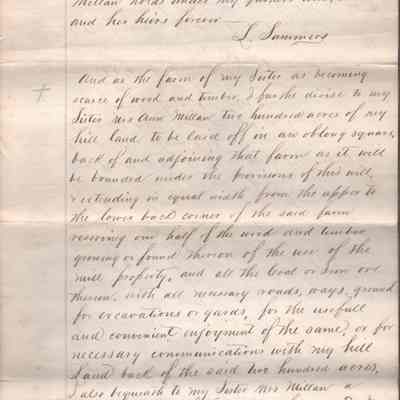 Millan holds under my
and her heirs forever —
L. Summers
And as the farm of my Sister is becoming
scarce of wood and timber, I further devise to my
Sister Mrs Ann Millan two hundred acres of my
hill land to be laid off in an oblong square,
back of and adjoining that farm as it will
be bounded under the provisions of this will,
extending in equal width from the upper to
the lower back corner of the said farm
reserving one half of the wood and timber
growing or found thereon of the use of the
mill property, and all the Coal or iron ore
therein, with all necessary roads, ways, ground
for excavations or yards, for the usefull
and convenient enjoyment of the same, or for
necessary communications with my hill
land back of the said two hundred acres,
I also bequeath to my Sister Mrs Millan a